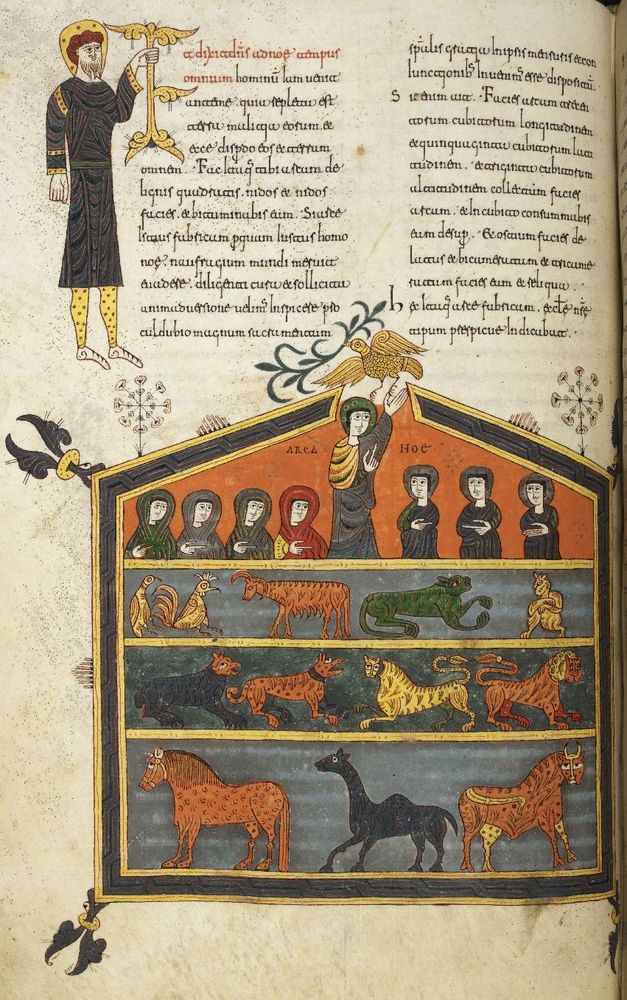 et dixit dns ad noe tempus
omnium hominum iam venit
ante me. quia repleta est
terra malitia eorum. et
ecce disperdo eos et terram
omnem. Fac itaq tibi arcam de
lignis quadratis. nidos et nidos
facies. et bituminabis eam. Si arce
istius fabricam p quam iustus homo
noe. naufragium mundi meruit
evadere. diligenti cura et sollicita
animadversione velim inspicere pro
culdubio magnum sacramentum
spitalis gratia in ipsis mensuris et con
iunctionib invenim esse dispositum.
Sic enim ait. Facies arcam trecen
torum cubitorum longitudinem
et quinquaginta cubitorum lati
tudinem. et triginta cubitorum
altitudinem collectam facies
arcam. et in cubito consummabis
eam desup. Et ostium facies de
latus et bicumerata et tricume
rata facies eam et reliqua
hec itaq arce fabricam. ecle nse
tipum perspicue indicabat.
ARCA NOE